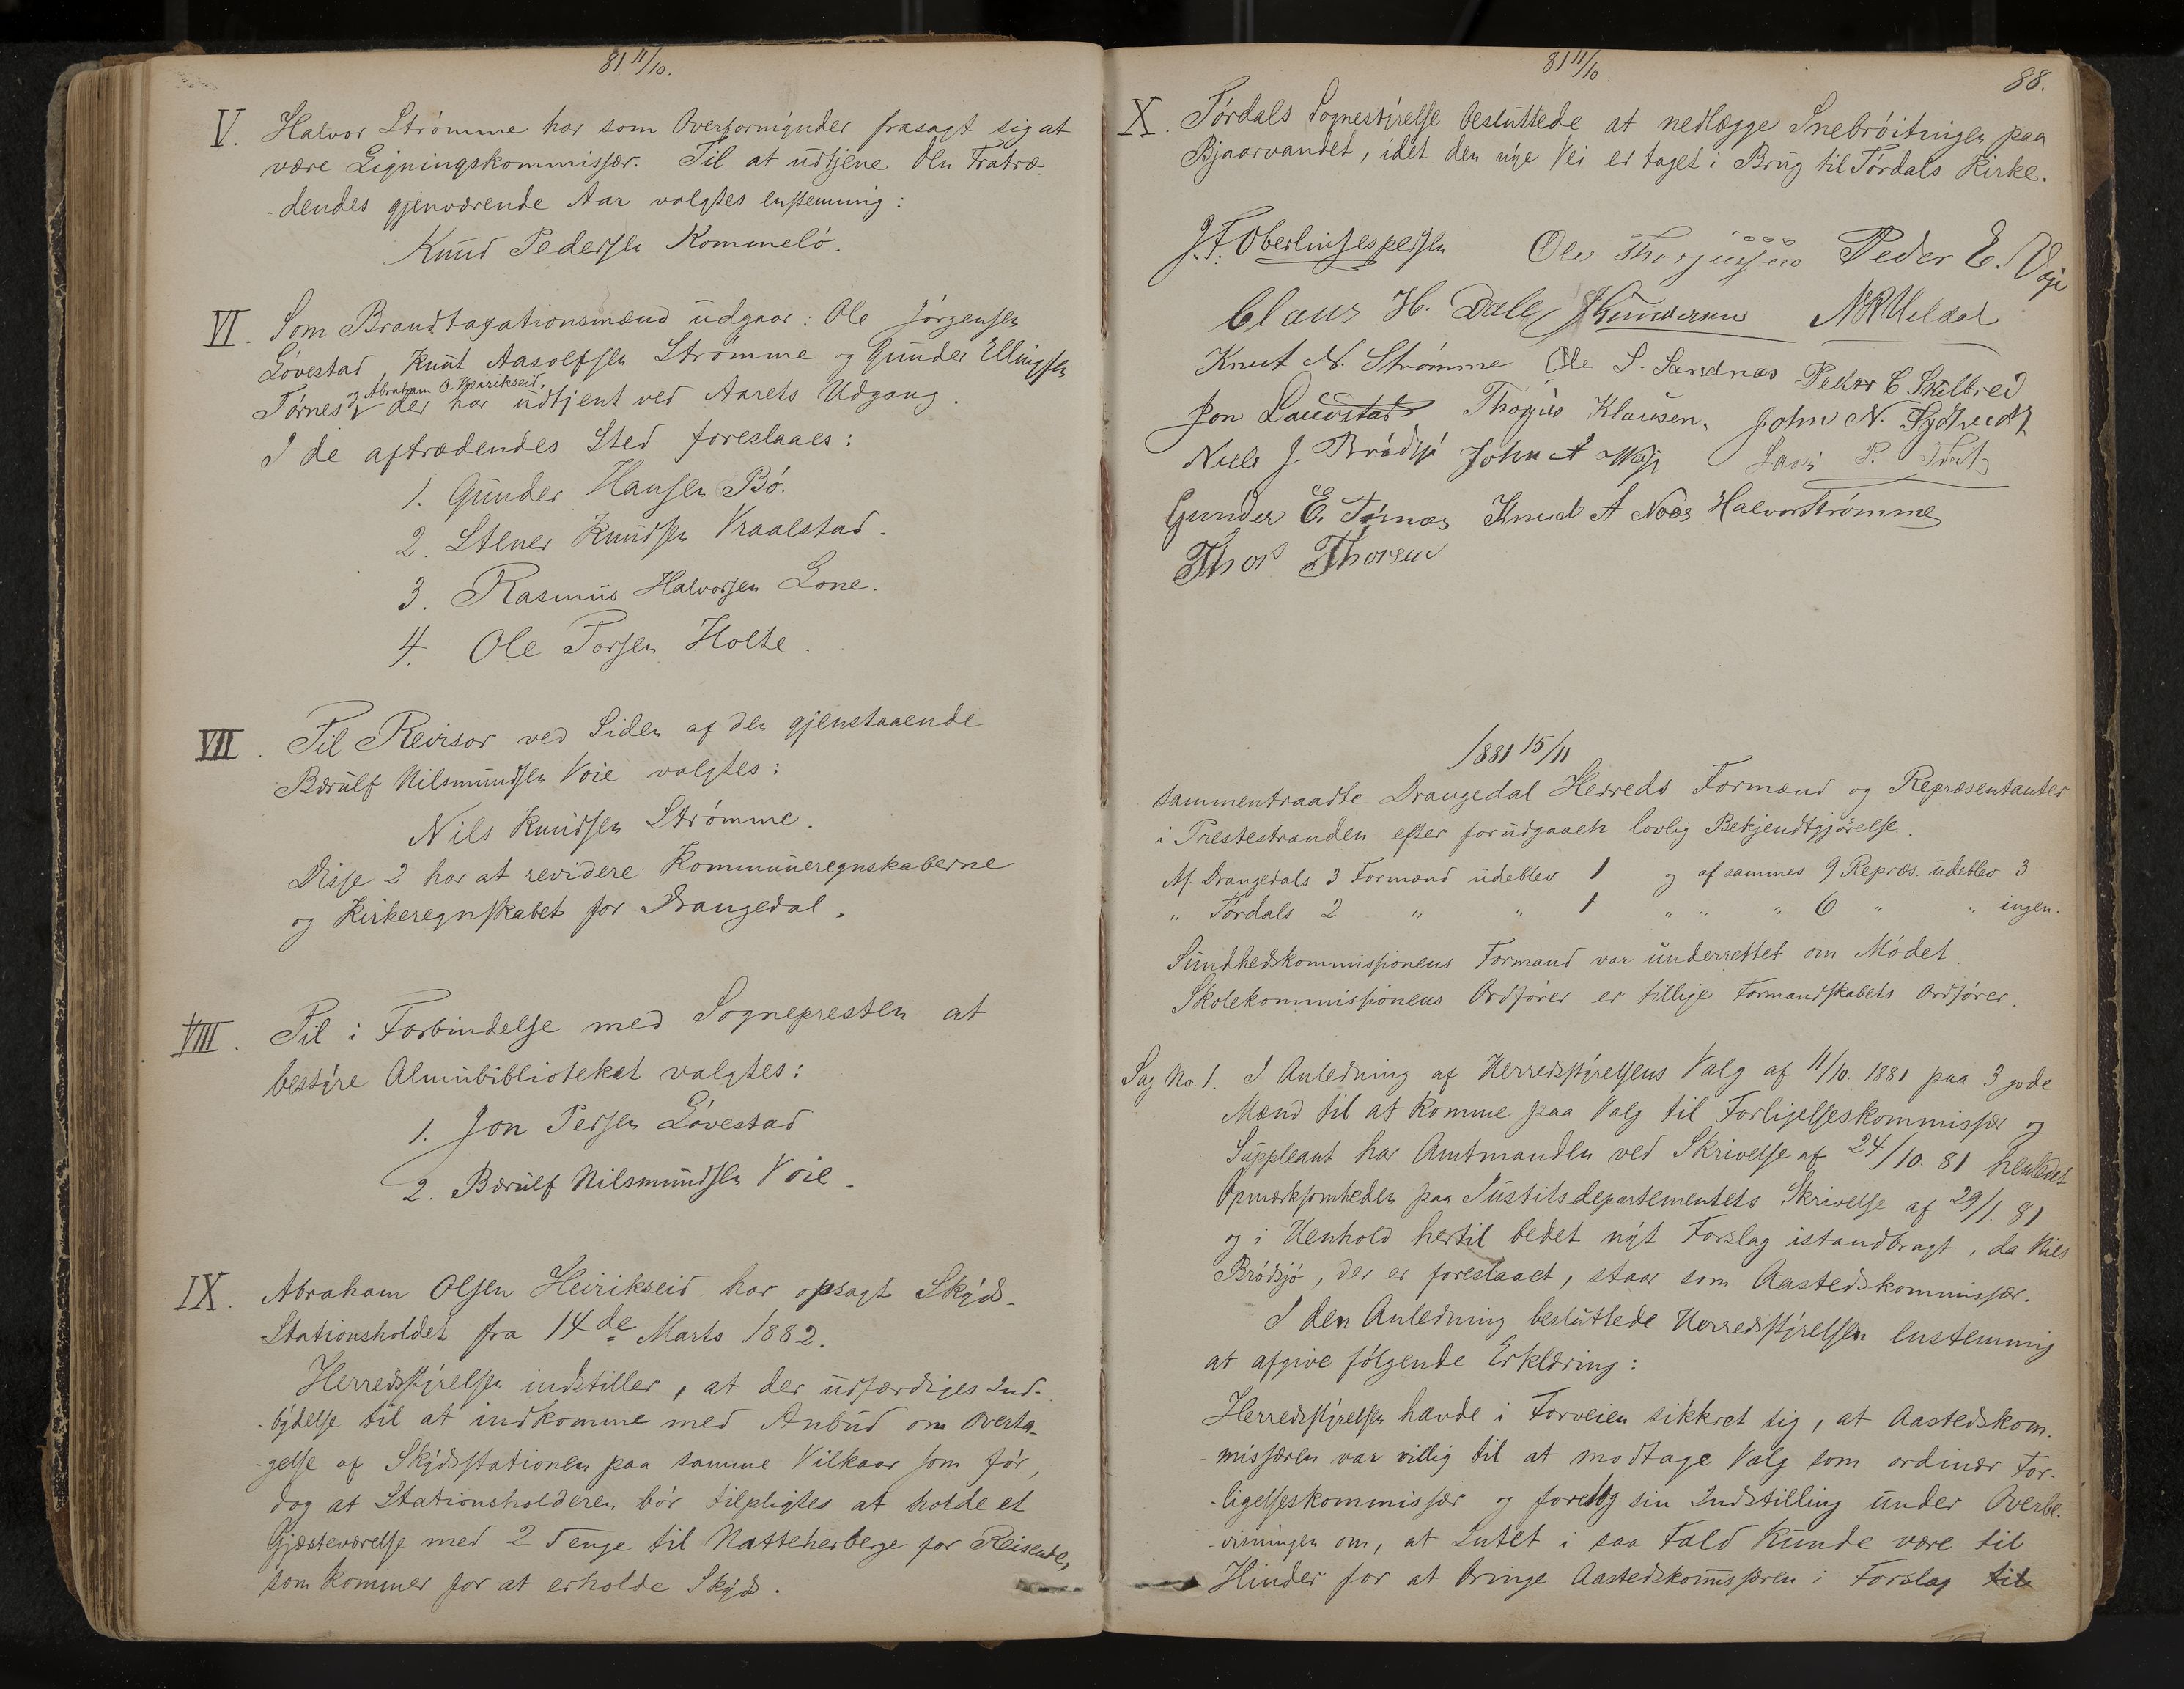 81 11/10.
V. Halvor Strömme har som Overformynder frasagt sig at
være Ligningskommissær. Til at udtjene den Fratræ-
-dendes gjenværende Aar valgtes enstemmig:
Knud Pedersen Kommelö.
VI. Som Brandtaxationsmænd udgaar: Ole Jörgensen
Lövestad, Knut Aasolfsen Strömme og Gunder Ellingsen
og Abraham O. Heirikseid,
Törnes der har udtjent ved Aarets Udgang.
I de aftrædendes Sted foreslaaes:
1. Gunder Hansen Bö.
2. Stener Knudsen Vraalstad.
3. Rasmus Halvorsen Lone.
4. Ole Torsen Holte.
VII. Til Revisor ved Siden af den gjenstaaende
Bærulf Nilsmundsen Voie valgtes:
Nils Knudsen Strömme.
Disse 2 har at revidere Kommuneregnskaberne
og Kirkeregnskabet for Drangedal.
VIII. Til i Forbindelse med Sognepresten at
bestyre Almubiblioteket valgtes:
1. Jon Persen Lövestad
2. Bærulf Nilsmundsen Voie.
IX. Abraham Olsen Heirikseid har opsagt Skyds-
Stationsholdet fra 14de Marts 1882.
Herredsstyrelsen indstiller, at der udfærdiges Ind-
-bydelse til at indkomme med Anbud om Overta-
-gelse af Skydsstationen paa samme Vilkaar som för,
dog at Stationsholderen bör tilpligtes at holde et
Gjæsteværelse med 2 Senge til Natteherberge for Reisende,
som kommer for at erholde Skyds.
81 11/10.
88.
X. Tördals Sognestyrelse besluttede at nedlægge Snebröitningen paa
Bjaarvandet, idet den nye Vei er taget i Brug til Tördals Kirke.
J. F. Oberlin Jespersen Ole Peder E. Voje
Claus H. Dale Gundersen N R Ueldal
Knut N. Strömme Ole S. Sandnæs Peder C Skilbred
Jon Lauvstad Thorjus Klausen. John N.
Niels J. Brödsjö John A P.
Gunder E. Törnæs Knud A Noes Halvor Strömme
Thor Thorsen
1881 15/11
sammentraadte Drangedal Herreds Formænd og Repræsentanter
i Prestestranden efter forudgaaen lovlig Bekjendtgjörelse.
Af Drangedals 3 Formænd udeblev 1 og af sammes 9 Repræs. udeblev 3
" Tördals 2 " " 1 " " " 6 " " ingen.
Sundhedskommissionens Formand var underrettet om Mödet.
Skolekommissionens Ordförer er tillige Formandskabets Ordförer.
Sag No. 1. I Anledning af Herredsstyrelsens Valg af 11/10. 1881 paa 3 gode
Mænd til at komme paa Valg til Forligelseskommissær og
Suppleant har Amtmanden ved Skrivelse af 24/10. 81 henledet
Opmærksomheden paa Justitsdepartementets Skrivelse af 29/1. 81
og i Henhold hertil bedet nyt Forslag istandbragt, da Niels
Brödsjö, der er foreslaaet, staar som Aastedskommissær.
I den Anledning besluttede Herredsstyrelsen enstemmig
at afgive fölgende Erklæring:
Herredsstyrelsen havde i Forveien sikkret sig, at Aastedskom-
-missæren var villig til at modtage Valg som ordinær For-
-ligelseskommissær og foretog sin Indstilling under Overbe-
-visningen om, at Intet i saa Fald kunde være til
Hinder for at bringe Aastedskommissæren i Forslag til